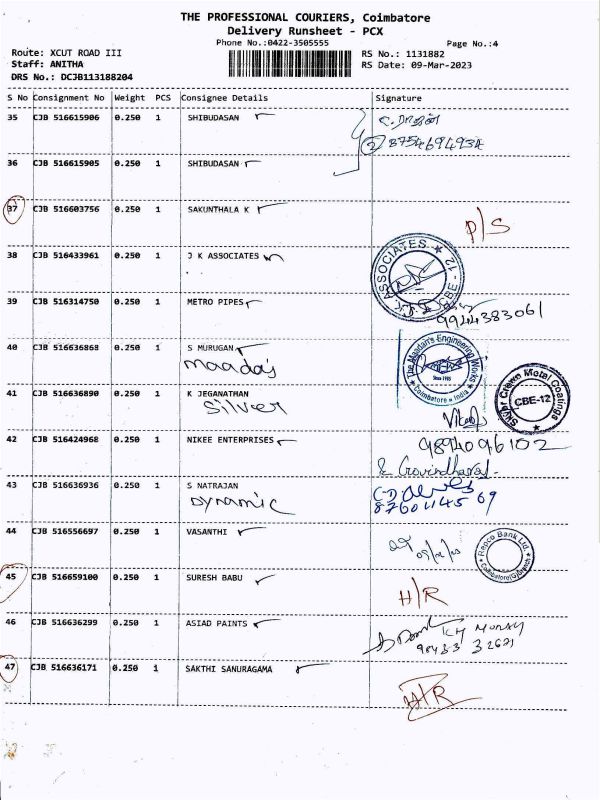 THE PROFESSIONAL COURIERS, Coimbatore
Delivery Runsheet - PCX
Phone No.:0422-3505555
Page No.:4
Route: XCUT ROAD III
RS No.: 1131882
Staff: ANITHA
RS Date: 09-Mar-2023
DRS No.: DCJB113188204
S No Consignment No Weight PCS Consignee Details Signature
35 CJB 516615906 0.250 1 SHIBUDASAN
36 CJB 516615905 0.250 1 SHIBUDASAN
37 CJB 516603756 0.250 1 SAKUNTHALA K
P/S
38 CJB 516433961 0.250 1 J K ASSOCIATES
J.K. ASSOCIATES ★ CBE - 12 ★
39 CJB 516314750 0.250 1 METRO PIPES
9944383061
40 CJB 516636868 0.250 1 S MURUGAN
Maadas
The Maadan's Engineering Works
Since 1985
Coimbatore India
41 CJB 516636890 0.250 1 K JEGANATHAN
Silveer
Metal Coatings
CBE-12
42 CJB 516424968 0.250 1 NIKEE ENTERPRISES
9894096102
43 CJB 516636936 0.250 1 S NATRAJAN
Dynamic
44 CJB 516556697 0.250 1 VASANTHI
Repco Bank Ltd.
45 CJB 516659100 0.250 1 SURESH BABU
H/R
46 CJB 516636299 0.250 1 ASIAD PAINTS
47 CJB 516636171 0.250 1 SAKTHI SANURAGAMA
H/R